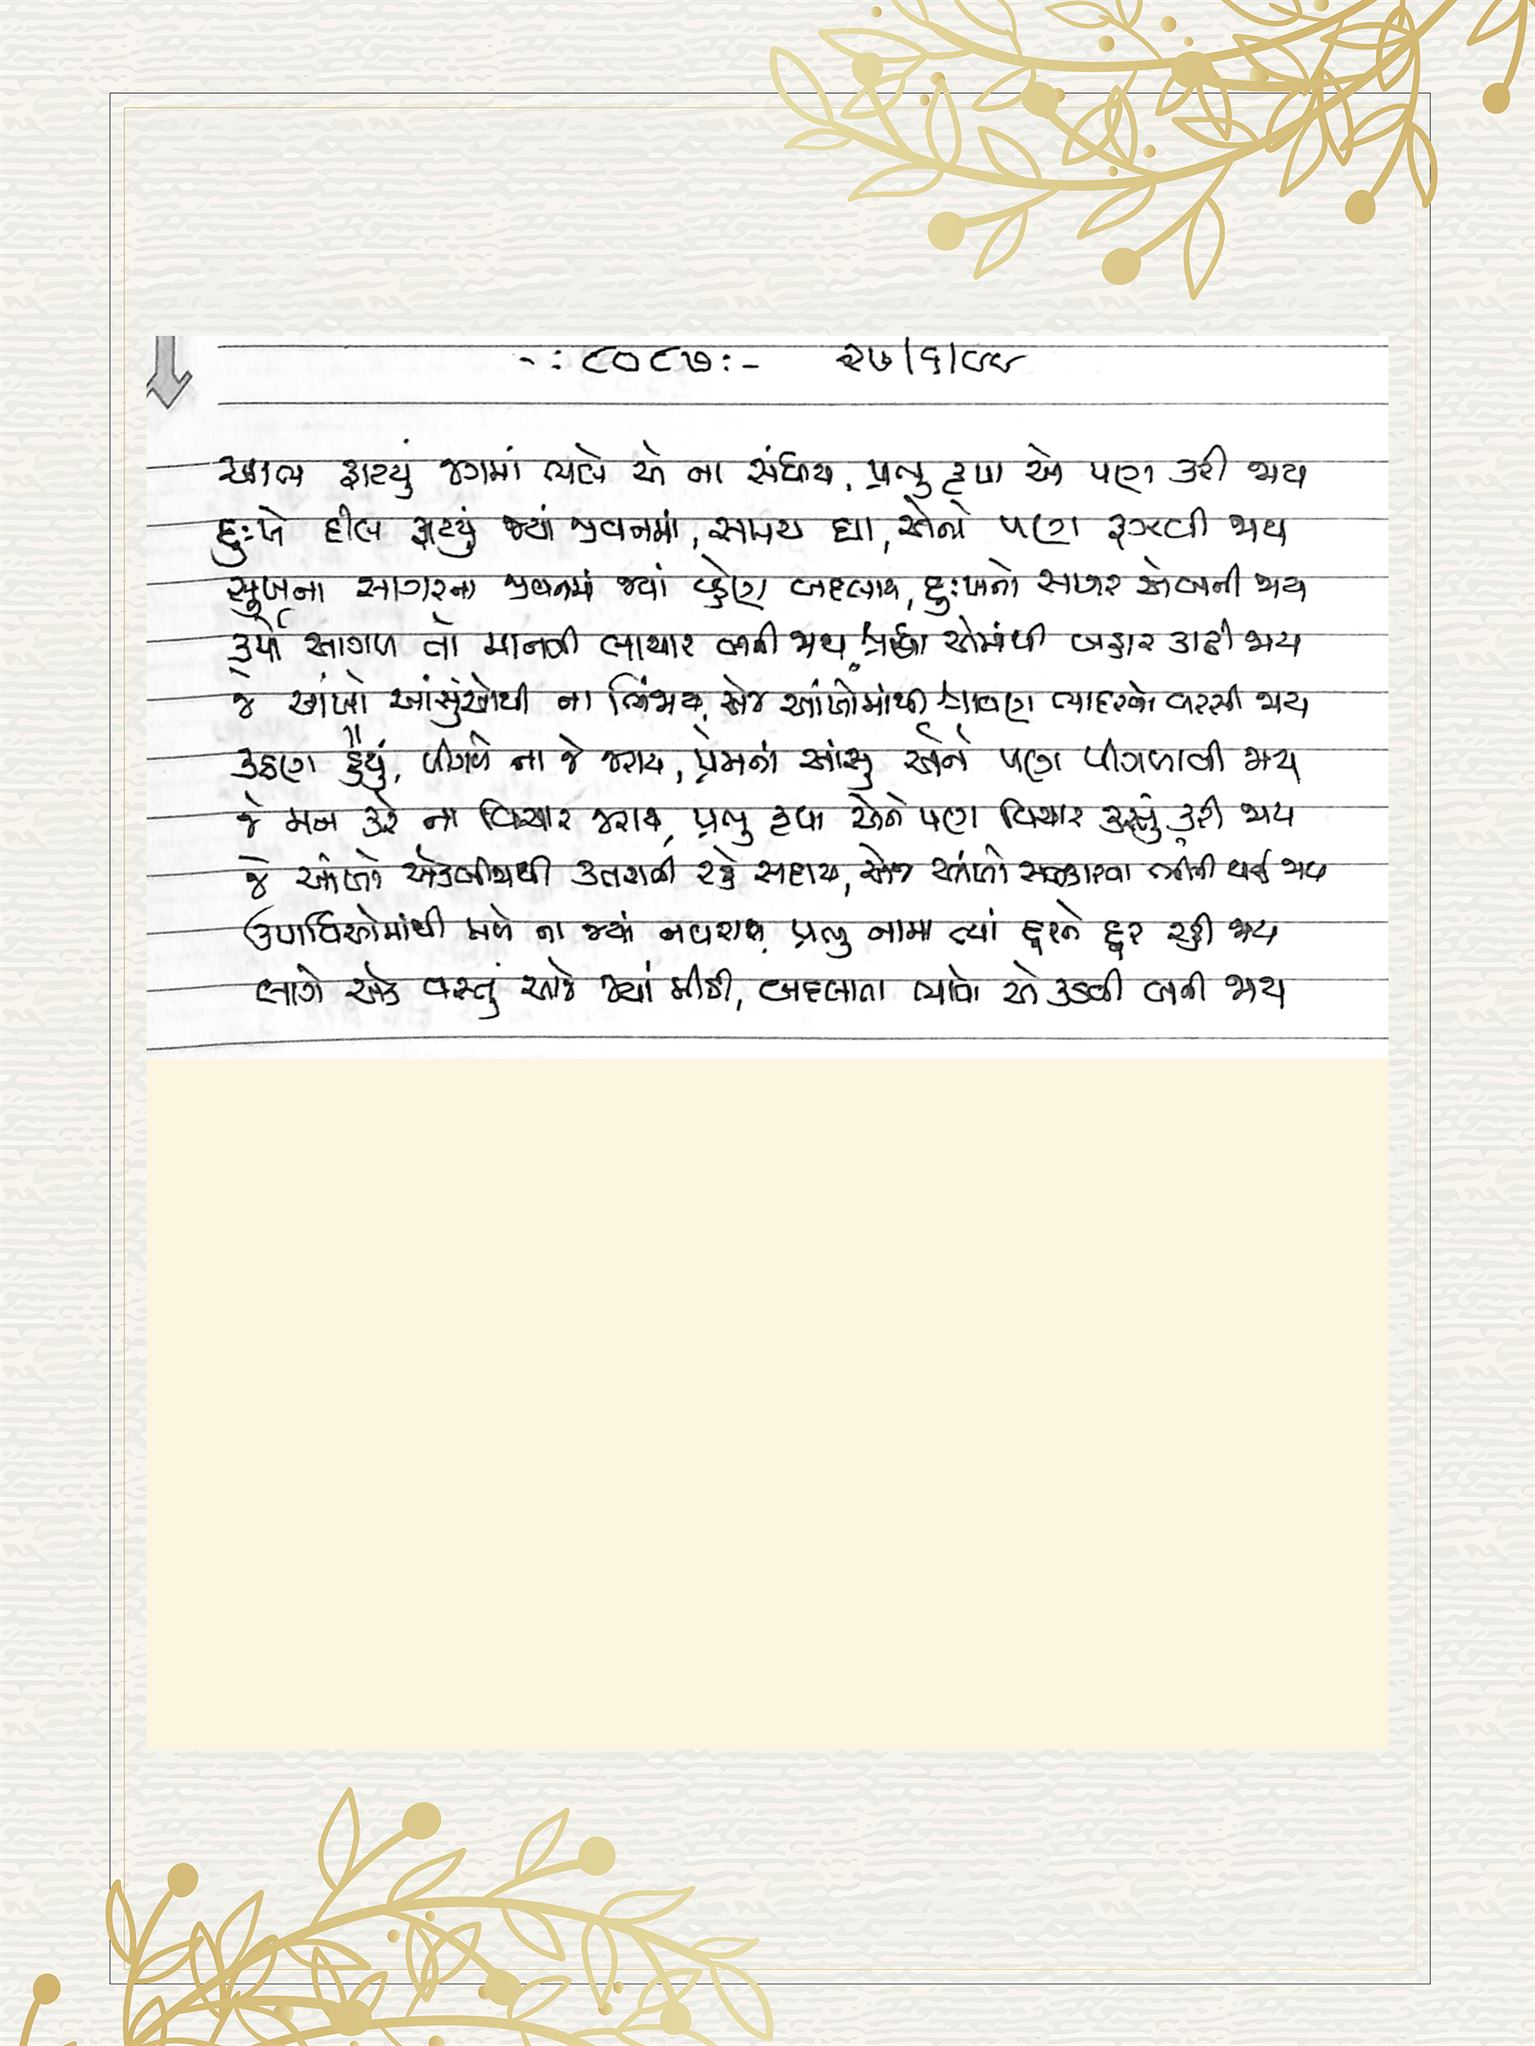 -: ૮૦૮૭:- ૨૭/૬/૯૯
આભ ફાટયું જગમાં ભલે એ ના સંધાય, પ્રભુ કૃપા એ પણ કરી જાય
દુઃખે દીલ ફાટયું જ્યાં જીવનમાં, સમય ઘા, એનો પણ રૂઝવી જાય
સુખના સાગરના જીવનમાં જ્યાં વ્હેણ બદલાય, દુઃખનો સાગર એ બની જાય
કર્મો આગળ તો માનવી લાચાર બની જાય, શ્રદ્ધા એમાંથી બહાર કાઢી જાય
જે આંખો આંસુંઓથી ના ભિંજાય, એજ આંખોમાંથી શ્રાવણ ભાદરવો વરસી જાય
કઠણ હૈયું, પીગળે ના જે જરાય, પ્રેમનાં આંસુ એને પણ પીગળાવી જાય
જે મન કરે ના વિચાર જરાય, પ્રભુ કૃપા એને પણ વિચાર કરતું કરી જાય
જે આંખો એકબીજાથી કતરાતી રહે સદાય, એજ આંખો સત્કારવા ભીની થઈ જાય
ઉપાધિઓમાંથી મળે ના જ્યાં નવરાશ, પ્રભુ નામ ત્યાં દૂરને દૂર રહી જાય
લાગે એક વસ્તું આજે જ્યાં મીઠી, બદલાતા ભાવો એ કડવી બની જાય